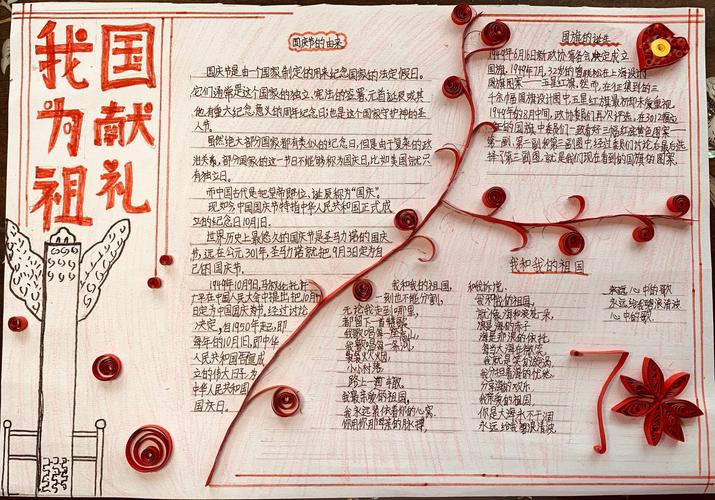 我为祖
国献礼
国庆节的由来
国庆节是由一个国家制定的用来纪念国家的法定假日。
它们通常是这个国家的独立、宪法的签署、元首诞辰或其
他有重大纪念意义的周年纪念日；也是这个国家守护神的圣
人节。
虽然绝大部分国家都有类似的纪念日，但是由于复杂的政
治关系，部分国家的这一节日不能够称为国庆日，比如美国
有独立日。
而中国古代是把皇帝即位、诞辰称为“国庆”。
现如今中国国庆节特指中华人民共和国正式成
立的纪念日10月1日。
世界历史上最悠久的国庆节是圣马力诺的国庆
节，远在公元301年，圣马力诺就把9月3日定为自
己的国庆节。
1949年10月9日，
在中国人民大会中提出把10月1
日定为中国国庆节，经过讨论
决定，自1950年起，即
每年的10月1日，即中华
人民共和国宣告成
立的伟大日子，为
中华人民共和国
国庆日。
国旗的诞生
1949年6月16日新政协筹备会决定成立
国旗，1949年7月，32岁的曾联松在上海设计的
国旗图案——五星红旗。然而，在征集到的三
千余幅国旗设计图中五星红旗最初却未被重视。
1949年的8月中旬，政协委员们再次评选，在3012幅
的国旗中
我和我的祖国
我和我的祖国，
一刻也不能分割，
无论我走到哪里，
都留下一首赞歌。
我歌唱每一座高山，
我歌唱每一条河，
袅袅炊烟，
小小村落，
路上一道辙。
我最亲爱的祖国，
我永远紧依着你的心窝，
你用你那母亲的脉搏，
和我诉说。
我的祖国和我，
像海和浪花一朵，
浪是海的赤子，
海是那浪的依托，
每当大海在微笑，
我就是笑的旋涡，
我分担着海的忧愁，
分享海的欢乐。
我亲爱的祖国，
你是大海永不干涸
永远给我碧浪清波
心中的歌
永远给我碧浪清波
心中的歌
70